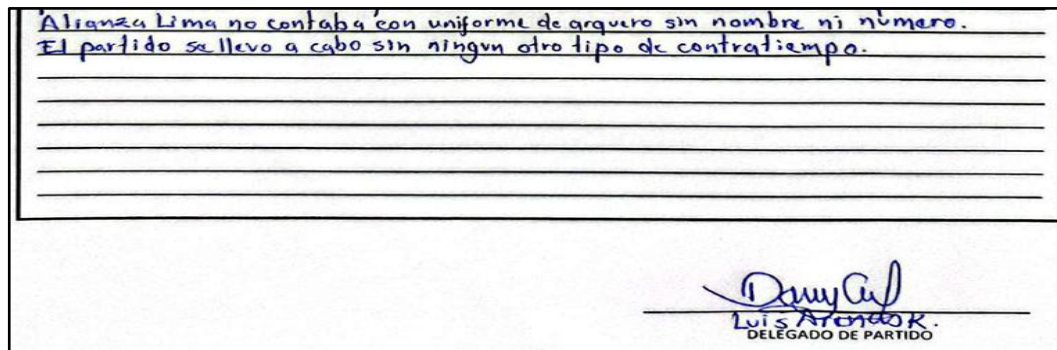 Alianza Lima no contaba con uniforme de arquero sin nombre ni número.
El partido se llevo a cabo sin ningun otro tipo de contratiempo.
Luis Arenas K.
DELEGADO DE PARTIDO